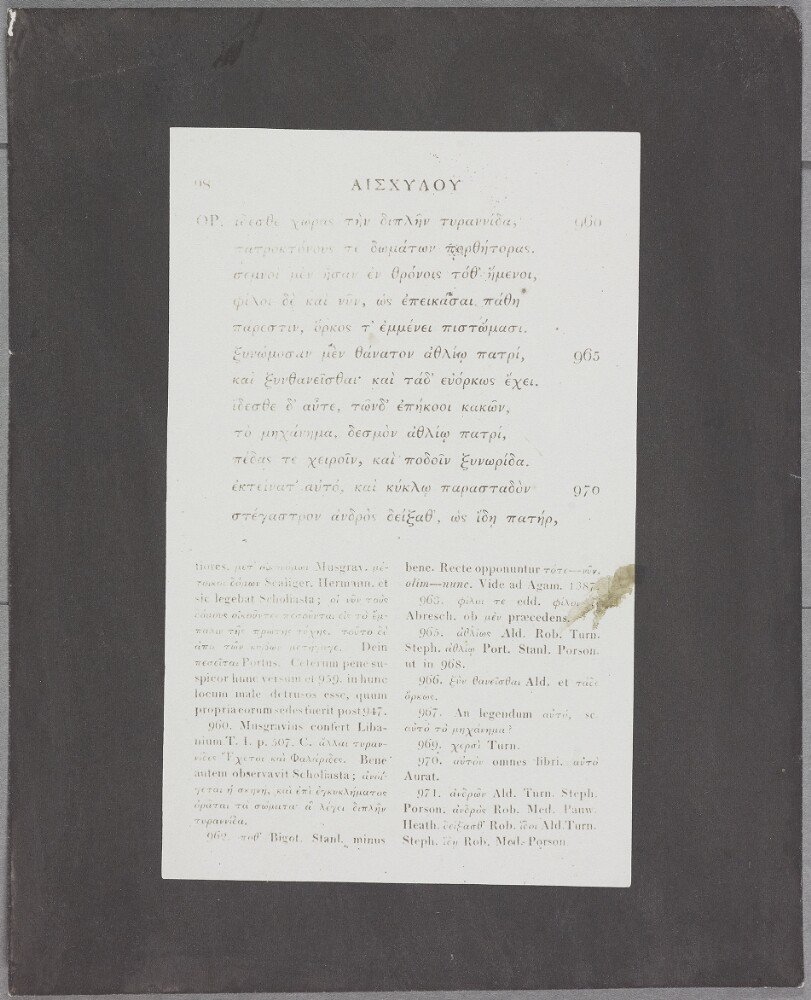 98
ΑΙΣΧΥΛΟΥ
ΟΡ. ἴδεσθε χώρας τὴν διπλῆν τυραννίδα, 960
πατροκτόνους τε δωμάτων πορθήτορας.
σεμνοὶ μὲν ἦσαν ἐν θρόνοις τόθ' ἥμενοι,
φίλοι δὲ καὶ νῦν, ὡς ἐπεικάσαι πάθη
πάρεστιν, ὅρκος τ' ἐμμένει πιστώμασι.
ξυνώμοσαν μὲν θάνατον ἀθλίῳ πατρί, 965
καὶ ξυνθανεῖσθαι· καὶ τάδ' εὐόρκως ἔχει.
ἴδεσθε δ' αὖτε, τῶνδ' ἐπήκοοι κακῶν,
τὸ μηχάνημα, δεσμὸν ἀθλίῳ πατρί,
πέδας τε χειροῖν, καὶ ποδοῖν ξυνωρίδα.
ἐκτείνατ' αὐτό, καὶ κύκλῳ παρασταδὸν 970
στέγαστρον ἀνδρὸς δείξαθ', ὡς ἴδῃ πατήρ,
tiores. Musgrav. μέ-
τοικοι δόμων Scaliger. Hermann. et
sic legebat Scholiasta; οἱ νῦν τοὺς
δόμους οἰκοῦντες πεσοῦνται εἰς τὸ ἔμ-
παλιν τῆς πρώτης τύχης. τοῦτο δὲ
ἀπὸ τῶν κύβων μετήγαγε. Dein
πεσεῖται Portus. Ceterum pene su-
spicor hunc versum et 959. in hunc
locum male detrusos esse, quum
propria eorum sedes fuerit post 947.
960. Musgravius confert Liba-
nium T. I. p. 507. C. ἄλλαι τυραν-
νίδες Ἔχετοι καὶ Φαλάριδες. Bene
autem observavit Scholiasta; ἀνοί-
γεται ἡ σκηνή, καὶ ἐπὶ ἐγκυκλήματος
ὁρᾶται τὰ σώματα· ἃ λέγει διπλῆν
τυραννίδα.
962. ποθ' Bigot. Stanl. minus
bene. Recte opponuntur τότε—νῦν.
olim—nunc. Vide ad Agam. 1587.
963. φίλοι τε edd. φίλοι δὲ
Abresch. ob μὲν præcedens.
965. ἀθλίως Ald. Rob. Turn.
Steph. ἀθλίῳ Port. Stanl. Porson.
ut in 968.
966. ξὺν θανεῖσθαι Ald. et τάδε
ὅρκως.
967. An legendum αὐτό, sc.
αὐτὸ τὸ μηχάνημα?
969. χερσὶ Turn.
970. αὐτὸν omnes libri. αὐτό
Aurat.
971. ἀνδρῶν Ald. Turn. Steph.
Porson. ἀνδρὸς Rob. Med. Pauw.
Heath. δείξασθ' Rob. ἴδοι Ald. Turn.
Steph. ἴδῃ Rob. Med. Porson